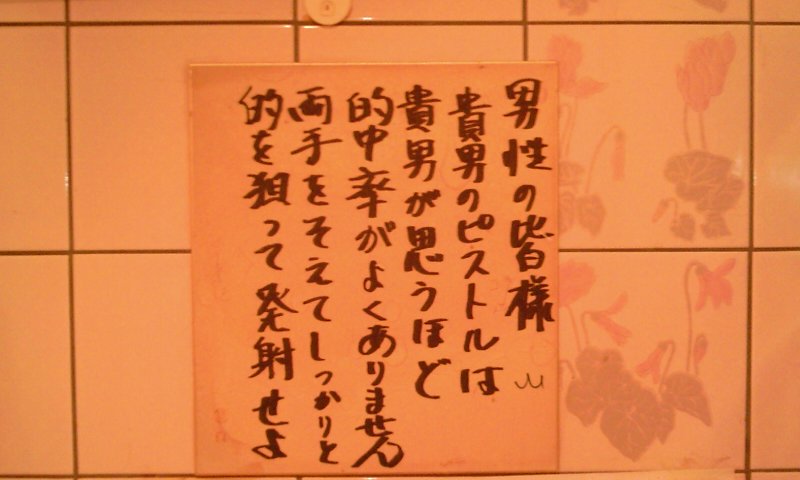 男性の皆様
貴男のピストルは
貴男が思うほど
的中率がよくありません
両手をそえてしっかりと
的を狙って発射せよ